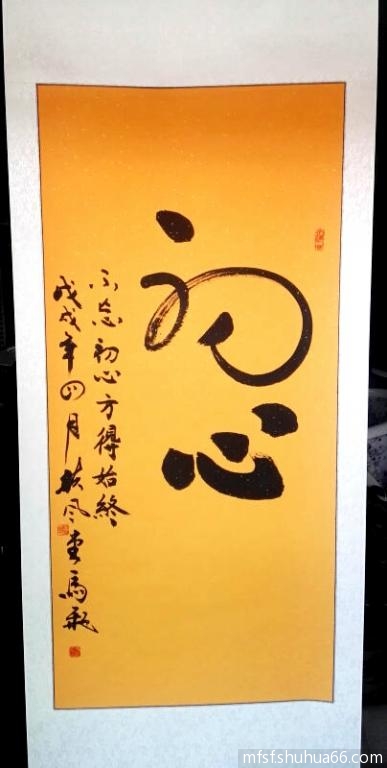 初心
不忘初心方得始终
戊戌年四月扶风堂马飞
mfsfshuhua66.com